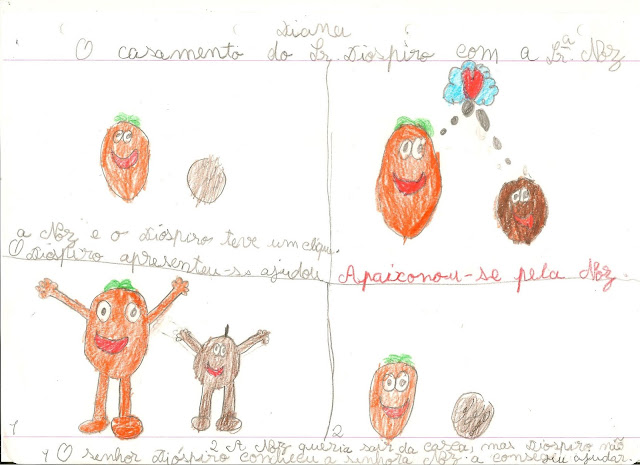 Diana
O casamento do Sr. Dióspiro com a Sr.ª Noz
a Noz e o Dióspiro teve um clique.
O Dióspiro apresenteu-se ajudou
Apaixonou-se pela Noz.
1
2
2 A Noz queria sair da casca, mas Dióspiro não
1 O senhor Dióspiro conheceu a senhora Noz. a conseguiu ajudar.